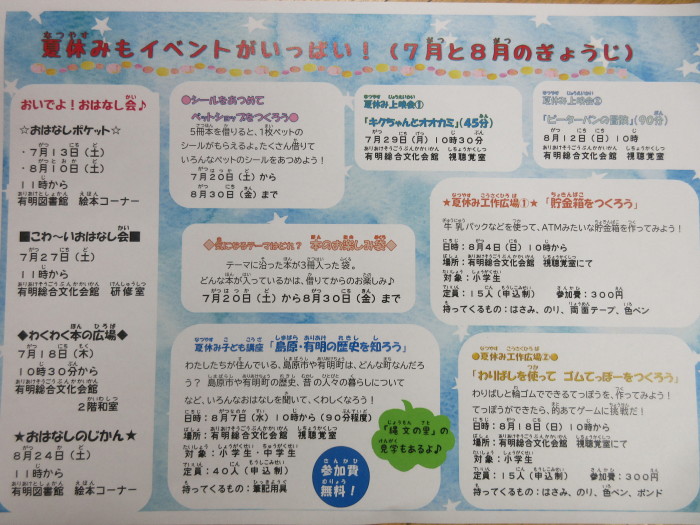 夏休みもイベントがいっぱい！（7月と8月のぎょうじ）
おいでよ！おはなし会♪
☆おはなしポケット☆
・7月13日（土）
・8月10日（土）
11時から
有明図書館 絵本コーナー
■こわ～いおはなし会■
7月27日（土）
11時から
有明総合文化会館 研修室
◆わくわく本の広場◆
7月18日（木）
10時30分から
有明総合文化会館
2階和室
★おはなしのじかん★
8月24日（土）
11時から
有明図書館 絵本コーナー
●シールをあつめて
ペットショップをつくろう●
5冊本を借りると、1枚ペットの
シールがもらえるよ。たくさん借りて
いろんなペットのシールをあつめよう！
7月20日（土）から
8月30日（金）まで
夏休み上映会①
「キクちゃんとオオカミ」（45分）
7月29日（月）10時30分
有明総合文化会館 視聴覚室
夏休み上映会②
「ピーターパンの冒険」（90分）
8月12日（月）10時
有明総合文化会館 視聴覚室
◇気になるテーマはどれ？ 本のお楽しみ袋◇
テーマに沿った本が3冊入った袋。
どんな本が入っているかは、借りてからのお楽しみ♪
7月20日（土）から8月30日（金）まで
★夏休み工作広場①★「貯金箱をつくろう」
牛乳パックなどを使って、ATMみたいな貯金箱を作ってみよう！
日時：8月4日（日）10時から
場所：有明総合文化会館 視聴覚室にて
対象：小学生
定員：15人（申込制） 参加費：300円
持ってくるもの：はさみ、のり、両面テープ、色ペン
夏休み子ども講座「島原・有明の歴史を知ろう」
わたしたちが住んでいる、島原市や有明町は、どんな町なんだろ
う？ 島原市や有明町の歴史、昔の人々の暮らしについて
など、いろんなおはなしを聞いて、くわしくなろう！
日時：8月7日（水）10時から（90分程度）
場所：有明総合文化会館 視聴覚室
対象：小学生・中学生
定員：40人（申込制）
持ってくるもの：筆記用具
「縄文の里」の
見学もあるよ♪
参加費
無料！
●夏休み工作広場②●
「わりばしを使って ゴムてっぽーをつくろう」
わりばしと輪ゴムでできるてっぽうを、作ってみよう！
てっぽうができたら、的あてゲームに挑戦だ！
日時：8月18日（日）10時から
場所：有明総合文化会館 視聴覚室にて
対象：小学生
定員：15人（申込制） 参加費：300円
持ってくるもの：はさみ、のり、色ペン、ボンド